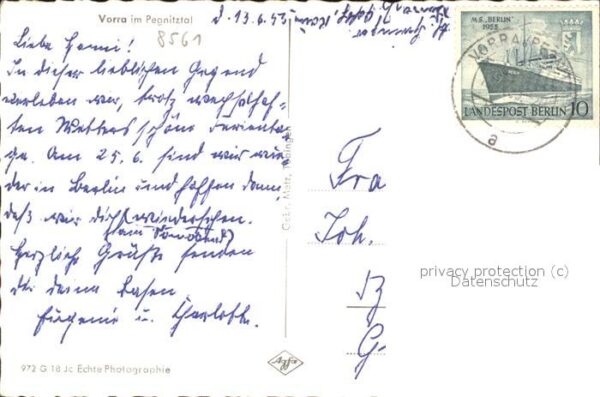 Vorra im Pegnitztal
d. 13.6.55
8561
Liebe Henni!
In dieser lieblichen Gegend
verleben wir, trotz wechselhaf-
ten Wetters schöne Ferienta-
ge. Am 25.6. sind wir wie-
der in Berlin und hoffen dann,
daß wir dich wiedersehen.
(am Sonnabend)
Herzliche Grüße senden
dir deine Basen
Eugenie u. Charlotte.
972 G 18 Jc Echte Photographie
Gebr. Metz, Tübingen
Agfa
M.S. „BERLIN"
1955
LANDESPOST BERLIN 10
VORRA
a
Fra
Joh.
G
privacy protection (c)
Datenschutz